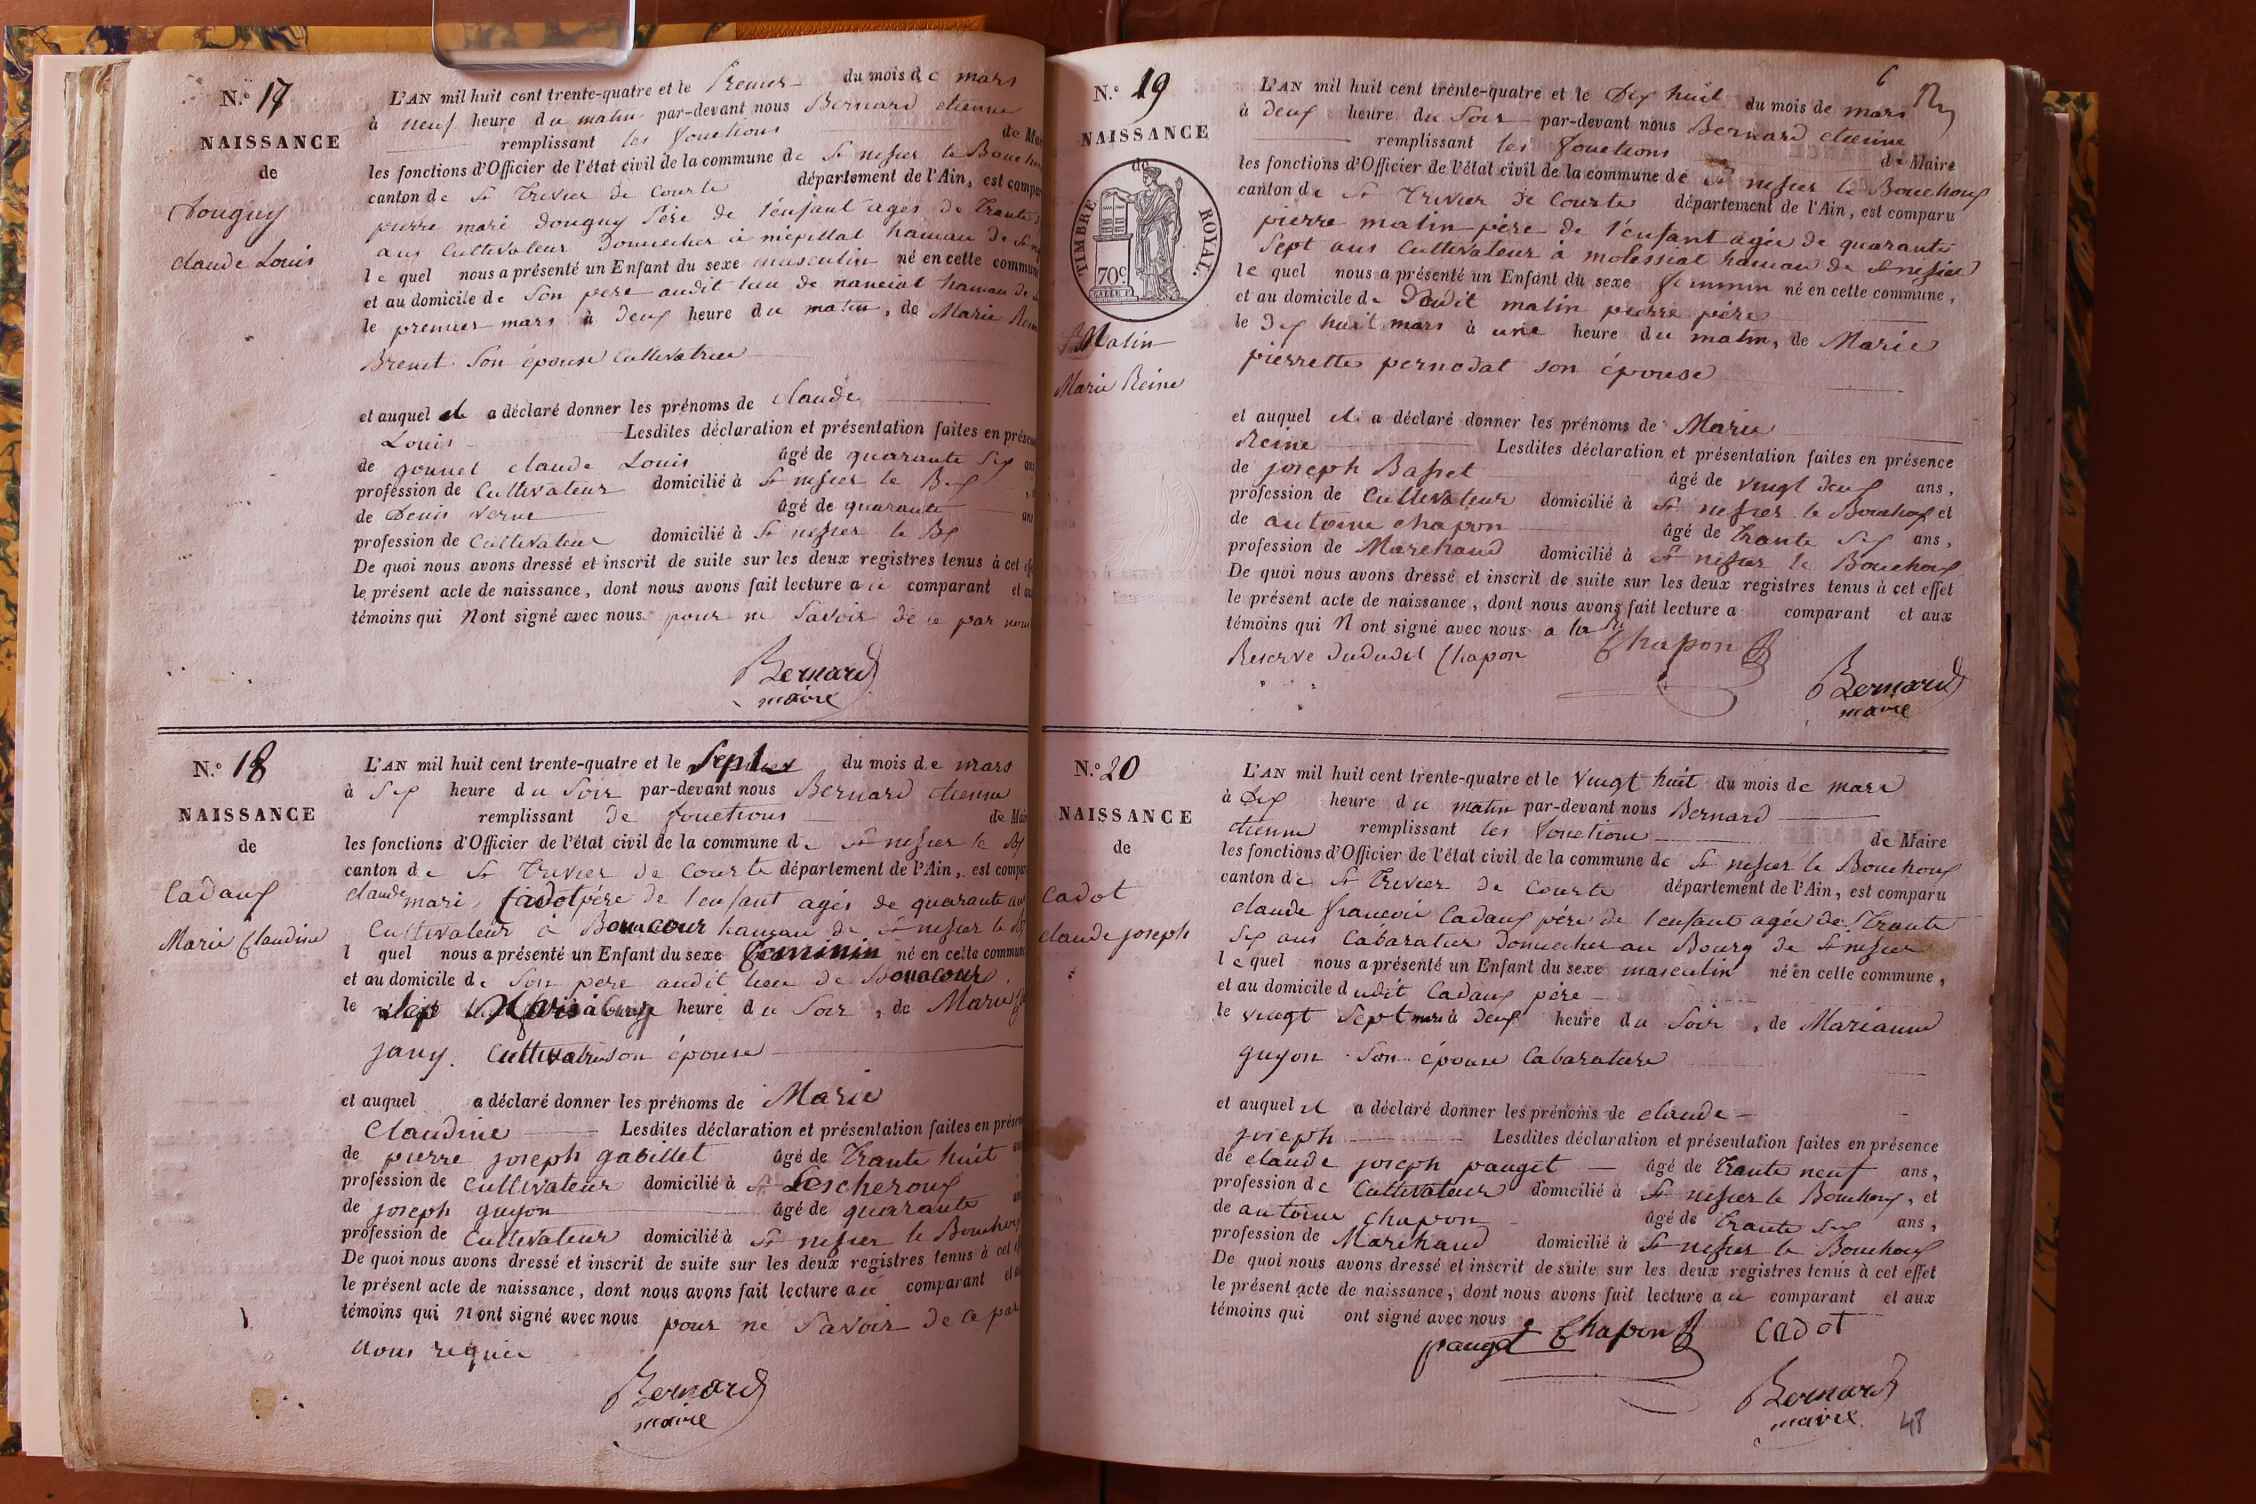 N.° 17
NAISSANCE
de
Douguy
claude Louis
L'AN mil huit cent trente-quatre et le Premier du mois de mars
à neuf heure du matin par-devant nous Bernard etienne
remplissant les fonctions de Mai
les fonctions d'Officier de l'état civil de la commune de St nesier le Bouchou
canton de St Trivier de Courte département de l'Ain, est compa
pierre mari Douguy père de l'enfant agés de trante
ans Cultivateur Domicilier à hameau de St
le quel nous a présenté un Enfant du sexe masculin né en cette commun
et au domicile de Son pere audit lieu de hameau de
le premier mars à deux heure du matin, de Marie
Brevet Son épouse Cultivatrice
et auquel il a déclaré donner les prénoms de claude
Louis Lesdites déclaration et présentation faites en présen
de gounet claude Louis âgé de quarante six an
profession de Cultivateur domicilié à St nesier le Bx
de Denis verne âgé de quarante an
profession de Cultivateur domicilié à St nesier le Bx
De quoi nous avons dressé et inscrit de suite sur les deux registres tenus à cet ef
le présent acte de naissance, dont nous avons fait lecture au comparant et a
témoins qui N ont signé avec nous pour ne Savoir de ce par nous
Bernard
maire
N.° 18
NAISSANCE
de
Cadaux
Marie Claudine
L'AN mil huit cent trente-quatre et le Sept du mois de mars
à Six heure du Soir par-devant nous Bernard etienne
remplissant de fonctions de Mai
les fonctions d'Officier de l'état civil de la commune de St nesier le Bx
canton de St Trivier de Courte département de l'Ain, est compa
claude mari Cadot père de l'enfant agés de quarante ans
Cultivateur à Bouacour hameau de St nesier le Bx
l quel nous a présenté un Enfant du sexe feminin né en cette commun
et au domicile de Son pere audit lieu de Bouacour
le Sept Mars à heure du Soir, de Marie
jany Cultivatrice Son épouse
et auquel a déclaré donner les prénoms de Marie
Claudine Lesdites déclaration et présentation faites en présen
de pierre joseph gabillet âgé de Trante huit an
profession de cultivateur domicilié à St Lescheroux
de joseph guyon âgé de quarante an
profession de Cultivateur domicilié à St nesier le Bouchoux
De quoi nous avons dressé et inscrit de suite sur les deux registres tenus à cet ef
le présent acte de naissance, dont nous avons fait lecture au comparant et a
témoins qui N ont signé avec nous pour ne Savoir de ce par
Nous requie
Bernard
maire
6
N.° 19
NAISSANCE
de
TIMBRE ROYAL.
70c.
Matin
Marie Reine
L'AN mil huit cent trente-quatre et le Dix huit du mois de mars
à deux heure du Soir par-devant nous Bernard etienne
remplissant les fonctions de Maire
les fonctions d'Officier de l'état civil de la commune de St nesier le Bouchoux
canton de St Trivier de Courte département de l'Ain, est comparu
pierre matin père de l'enfant agée de quarante
Sept ans Cultivateur à molessiat hameau de St nesier
le quel nous a présenté un Enfant du sexe feminin né en cette commune,
et au domicile de Dudit matin pierre père
le Dix huit mars à une heure du matin, de Marie
pierrette pernodat son épouse
et auquel il a déclaré donner les prénoms de Marie
Reine Lesdites déclaration et présentation faites en présence
de joseph Basset âgé de vingt deux ans,
profession de Cultivateur domicilié à St nesier le Bouchoux et
de antoine chapon âgé de trante six ans,
profession de Marchand domicilié à St nesier le Bouchoux
De quoi nous avons dressé et inscrit de suite sur les deux registres tenus à cet effet
le présent acte de naissance, dont nous avons fait lecture a comparant et aux
témoins qui N ont signé avec nous a la
Reserve dududit Chapon
Chapon
Bernard
maire
N.° 20
NAISSANCE
de
Cadot
claude joseph
L'AN mil huit cent trente-quatre et le vingt huit du mois de mars
à Dix heure du matin par-devant nous Bernard
etienne remplissant les fonctions de Maire
les fonctions d'Officier de l'état civil de la commune de St nesier le Bouchoux
canton de St Trivier de Courte département de l'Ain, est comparu
claude francois Cadaux père de l'enfant agée de Trante
Six ans Cabaratier Domicilier au Bourg de St nesier
le quel nous a présenté un Enfant du sexe masculin né en cette commune,
et au domicile dudit Cadaux père
le vingt Sept mars à deux heure du Soir, de Marianne
guyon Son épouse Cabaratiere
et auquel il a déclaré donner les prénoms de claude
joseph Lesdites déclaration et présentation faites en présence
de claude joseph pauget âgé de trante neuf ans,
profession de Cultivateur domicilié à St nesier le Bouchoux, et
de antoine chapon âgé de trante six ans,
profession de Marchand domicilié à St nesier le Bouchoux
De quoi nous avons dressé et inscrit de suite sur les deux registres tenus à cet effet
le présent acte de naissance, dont nous avons fait lecture au comparant et aux
témoins qui ont signé avec nous
pauget Chapon Cadot
Bernard
maire
48